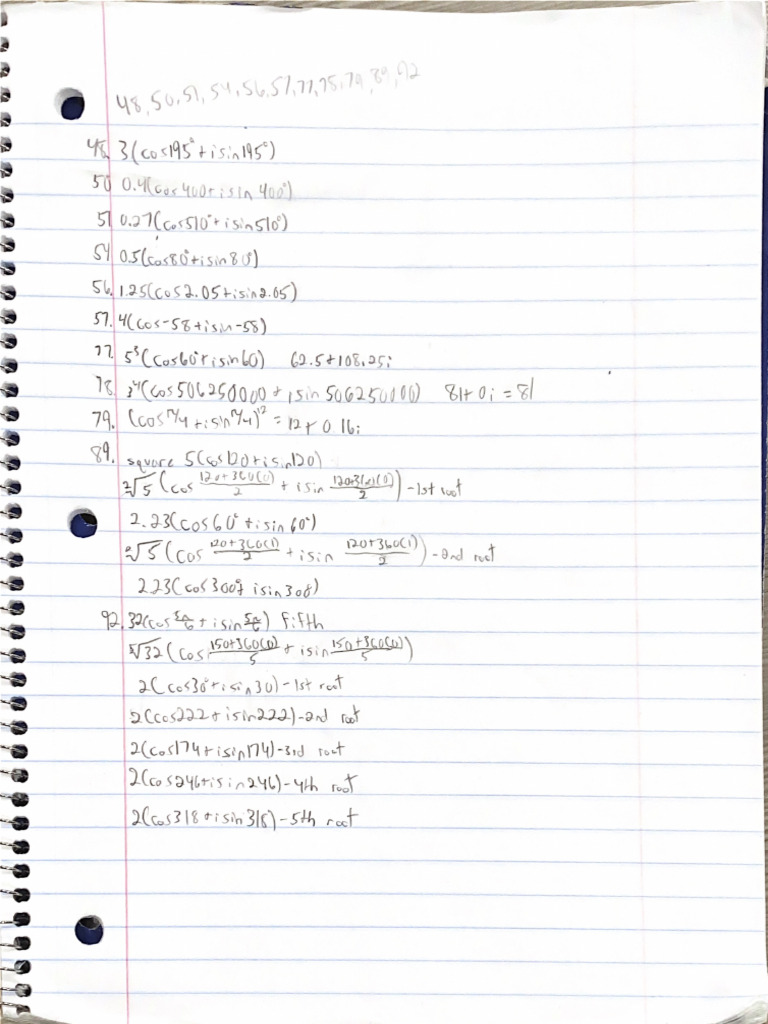 48, 50, 51, 54, 56, 57, 77, 78, 79, 89, 92
48. 3(cos195°+isin195°)
50 0.4(cos400+isin 400°)
51 0.27(cos510°+isin510°)
54 0.5(cos80°+isin80°)
56. 1.25(cos2.05+isin2.05)
57. 4(cos-58+isin-58)
77. 5³(cos60°+isin60) 62.5+108.25i
78. 3⁴(cos506250000+isin506250000) 81+0i=81
79. (cosπ/4+isinπ/4)¹²=12+0.16i
89. square 5(cos120+isin120)
²√5(cos (120+360(0))/2 + isin (120+360(0))/2)-1st root
2.23(cos60°+isin60°)
²√5(cos (120+360(1))/2 + isin (120+360(1))/2)-2nd root
2.23(cos300°+isin300)
92. 32(cos 5π/6 + isin 5π/6) fifth
⁵√32(cos (150+360(0))/5 + isin (150+360(0))/5)
2(cos30°+isin30)-1st root
2(cos222+isin222)-2nd root
2(cos174+isin174)-3rd root
2(cos246+isin246)-4th root
2(cos318+isin318)-5th root